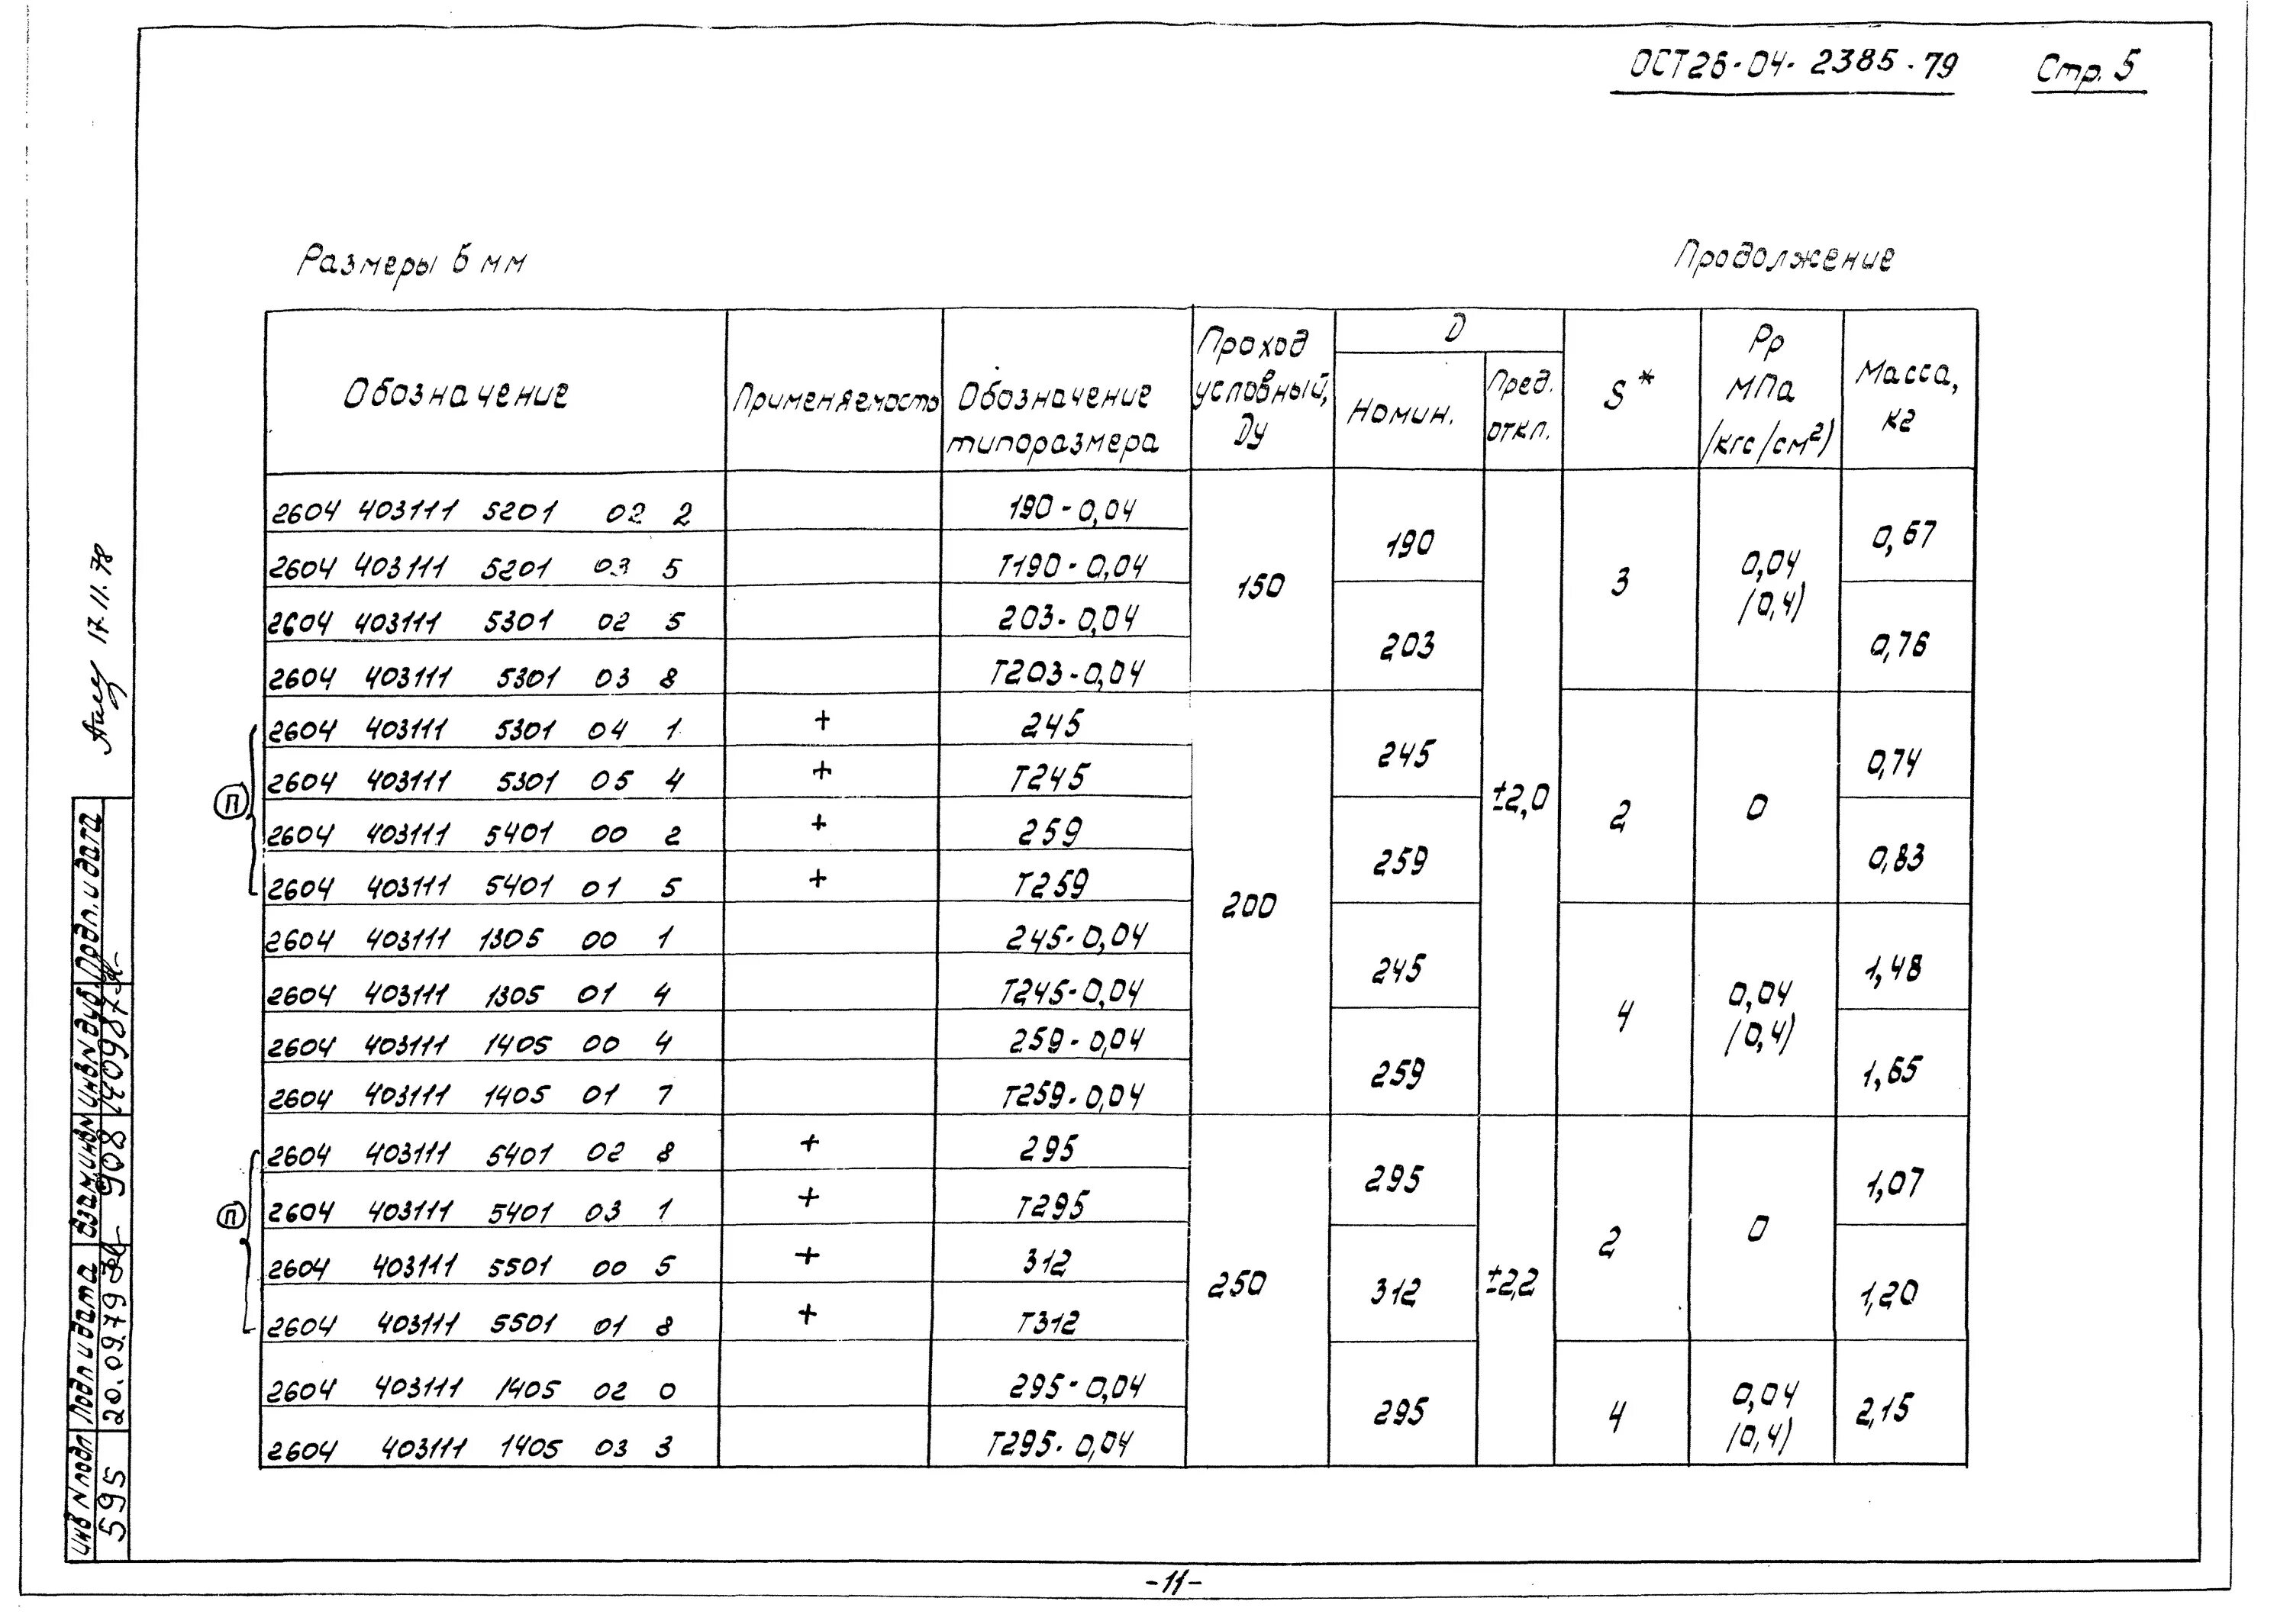 ОСТ26-04-2385-79 Стр. 5
Размеры в мм
Продолжение
Обозначение
Применяемость
Обозначение
типоразмера
Проход
условный,
Ду
D
Номин.
Пред.
откл.
S*
Рр
МПа
/кгс/см²/
Масса,
кг
2604 403111 5201 02 2 190-0,04
2604 403111 5201 03 5 Т190-0,04
2604 403111 5301 02 5 203-0,04
2604 403111 5301 03 8 Т203-0,04
2604 403111 5301 04 1 + 245
2604 403111 5301 05 4 + Т245
2604 403111 5401 00 2 + 259
2604 403111 5401 01 5 + Т259
2604 403111 1305 00 1 245-0,04
2604 403111 1305 01 4 Т245-0,04
2604 403111 1405 00 4 259-0,04
2604 403111 1405 01 7 Т259-0,04
2604 403111 5401 02 8 + 295
2604 403111 5401 03 1 + Т295
2604 403111 5501 00 5 + 312
2604 403111 5501 01 8 + Т312
2604 403111 1405 02 0 295-0,04
2604 403111 1405 03 3 Т295-0,04
150
200
250
190
203
245
259
245
259
295
312
295
±2,0
±2,2
3
2
4
2
4
0,04
/0,4/
0
0,04
/0,4/
0
0,04
/0,4/
0,67
0,76
0,74
0,83
1,48
1,65
1,07
1,20
2,15
П
П
17.11.78
Инв N подл Подп и дата Взам инв N Инв N дубл Подп. и дата
595 20.09.79 908
-11-